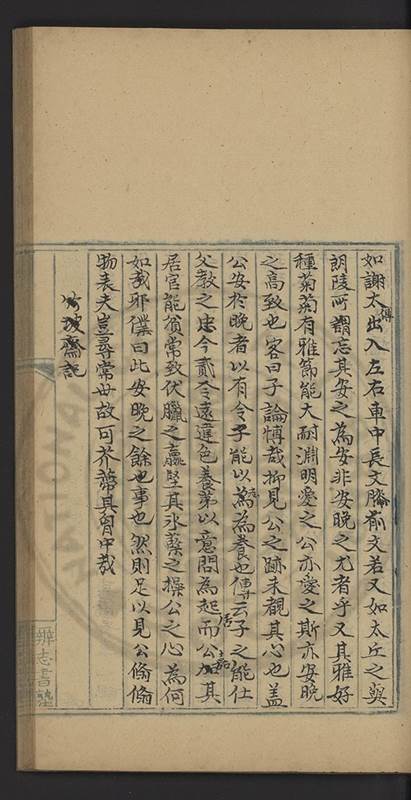 如謝太傅出入左右車中長文膝前文若又如太丘之與
朗陵所謂忘其安之為安非安晚之尤者乎又其雅好
種菊菊有雅節能大耐淵明愛之公亦愛之斯亦安晚
之高致也客曰子論博哉抑見公之跡未覩其心也蓋
公安於晚者以有令子能以善為養也傳云子之能仕
父教之忠今貳令遠違色養第以意問為起居而公嘉其
居官能貧常致伏臘之羸堅其氷蘗之操公之心為何
如哉邪僕曰此安晚之餘也事也然則足以見公翛翛
物表夫豈尋常世故可芥蔕其胷中哉
坡齋記
辨志書塾